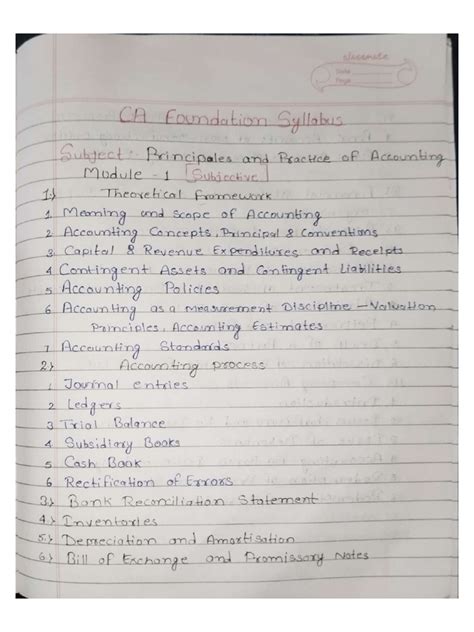 classmate
Date
Page
CA Foundation Syllabus
Subject: Principales and Practice of Accounting
Module - 1 Subjective
1) Theoretical framework
1 Meaning and scope of Accounting
2 Accounting Concepts, Principal & Conventions
3 Capital & Revenue Expenditures and Receipts
4 Contingent Assets and Contingent Liabilities
5 Accounting Policies
6 Accounting as a measurement Discipline - Valuation
Principles, Accounting Estimates
7 Accounting Standards
2) Accounting process
1 Journal entries
2 Ledgers
3 Trial Balance
4 Subsidiary Books
5 Cash Book
6 Rectification of Errors
3) Bank Reconciliation Statement
4) Inventories
5) Depreciation and Amortisation
6) Bill of Exchange and Promissory Notes